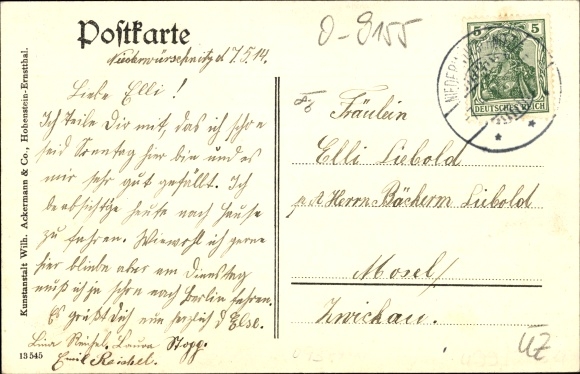 Postkarte
Niederwürschnitz d 7.5.14.
Liebe Elli!
Ich teile Dir mit, das ich schon
seid Sonntag hier bin und es
mir sehr gut gefällt. Ich
beabsichtige heute nach Hause
zu fahren. Wiewohl ich gerne
hier bliebe aber am Dienstag
muß ich ja schon nach Berlin fahren.
Es grüßt Dich nun herzlich d Else.
Lina Reichel. Laura Stopp.
Emil Reichel.
13545
Kunstanstalt Wilh. Ackermann & Co., Hohenstein-Ernstthal.
0-9155
5 5
DEUTSCHES REICH
NIEDER
Fräulein
Elli Liebold
p.A. Herrn Bäckerm Liebold
Mosel/
Zwickau.
ÜZ